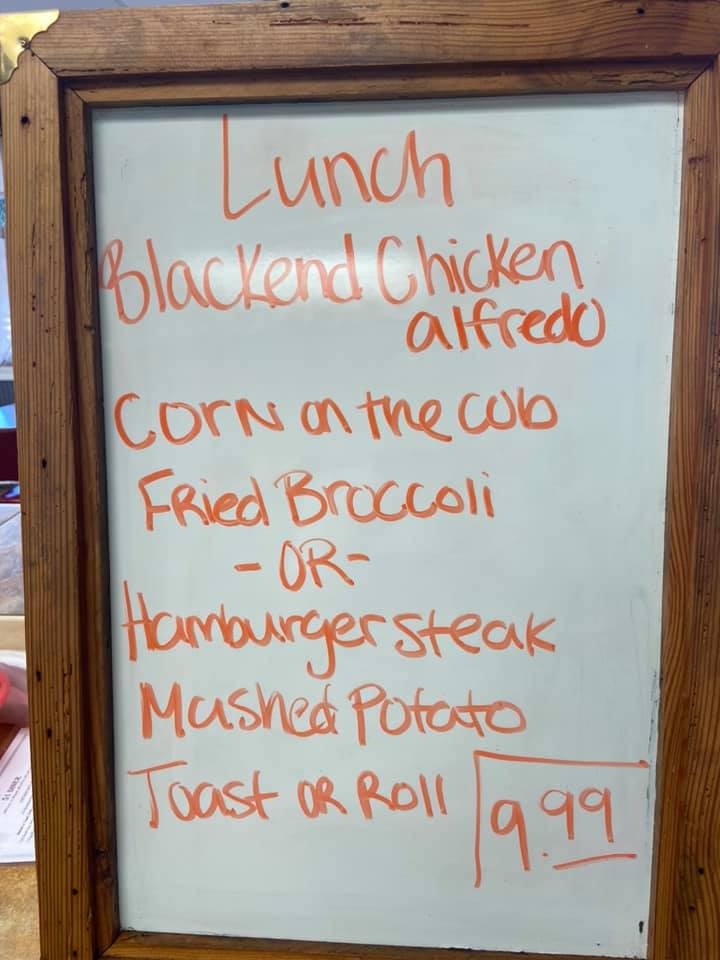 Lunch
Blackend Chicken
alfredo
Corn on the cob
Fried Broccoli
- OR -
Hamburger steak
Mashed Potato
Toast or Roll
9.99